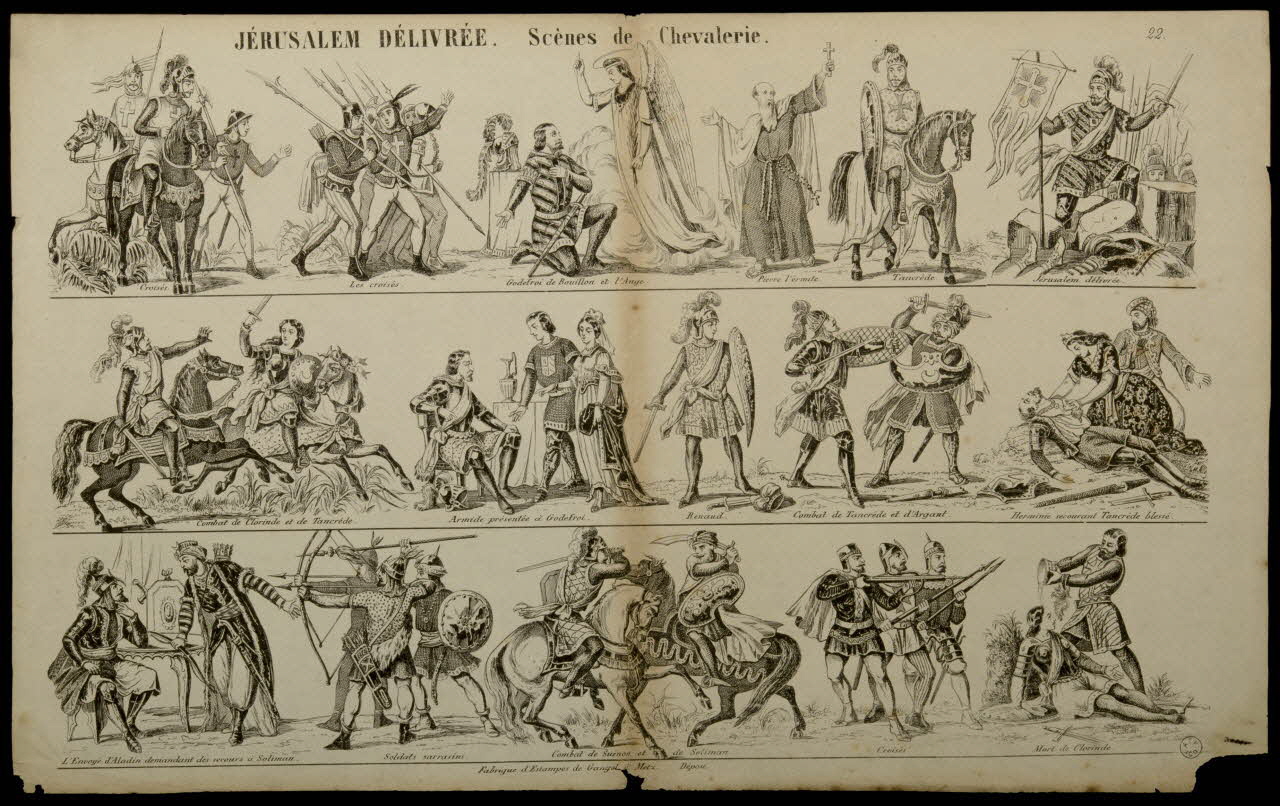 JÉRUSALEM DÉLIVRÉE. Scènes de Chevalerie.
22.
Croisés
Les croisés
Godefroi de Bouillon et l'Ange
Pierre l'ermite
Tancrède
Jérusalem délivrée
Combat de Clorinde et de Tancrède
Armide présentée à Godefroi
Renaud
Combat de Tancrède et d'Argant
Herminie secourant Tancrède blessé
L'Envoyé d'Aladin demandant des secours à Soliman.
Soldats sarrasins
Combat de et de Soliman
Croisés
Mort de Clorinde
Fabrique d'Estampes de Gangel à Metz